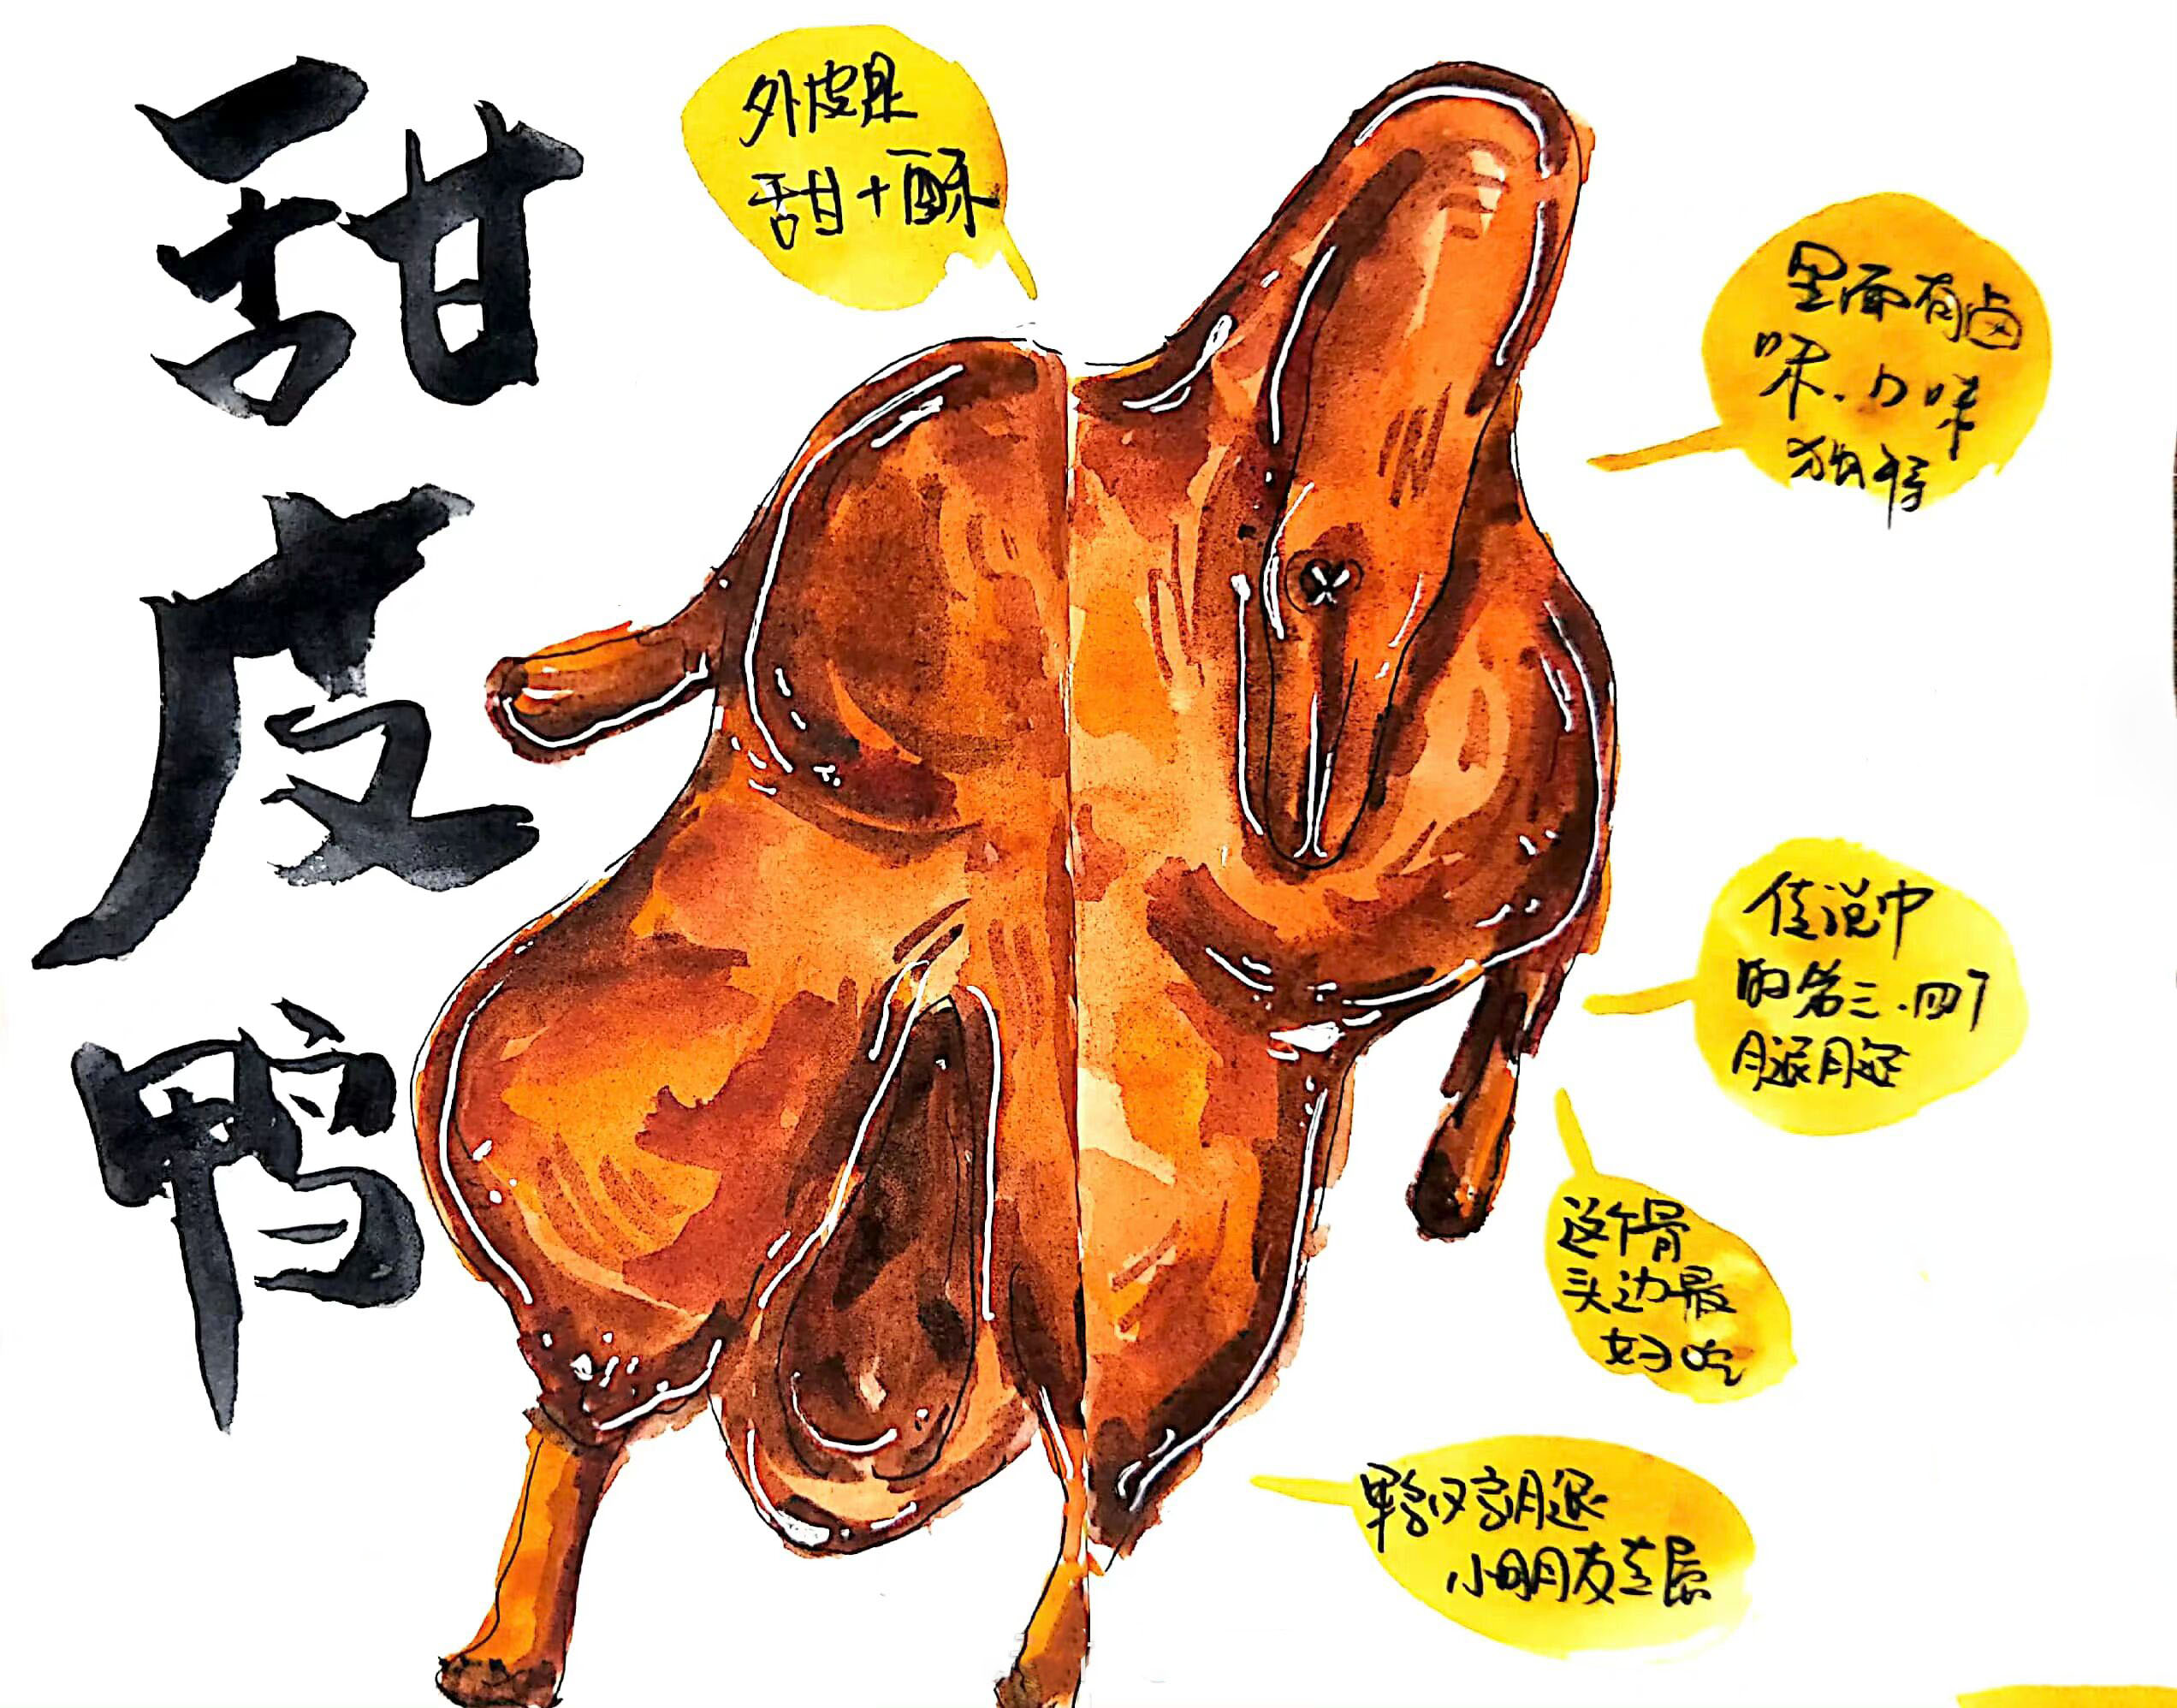 甜皮鸭
外皮是
甜+酥
里面有卤
味.口味
独特
传说中
的第三.四个
腿腿
这个骨
头边最
好吃
鸭腿
小朋友专属